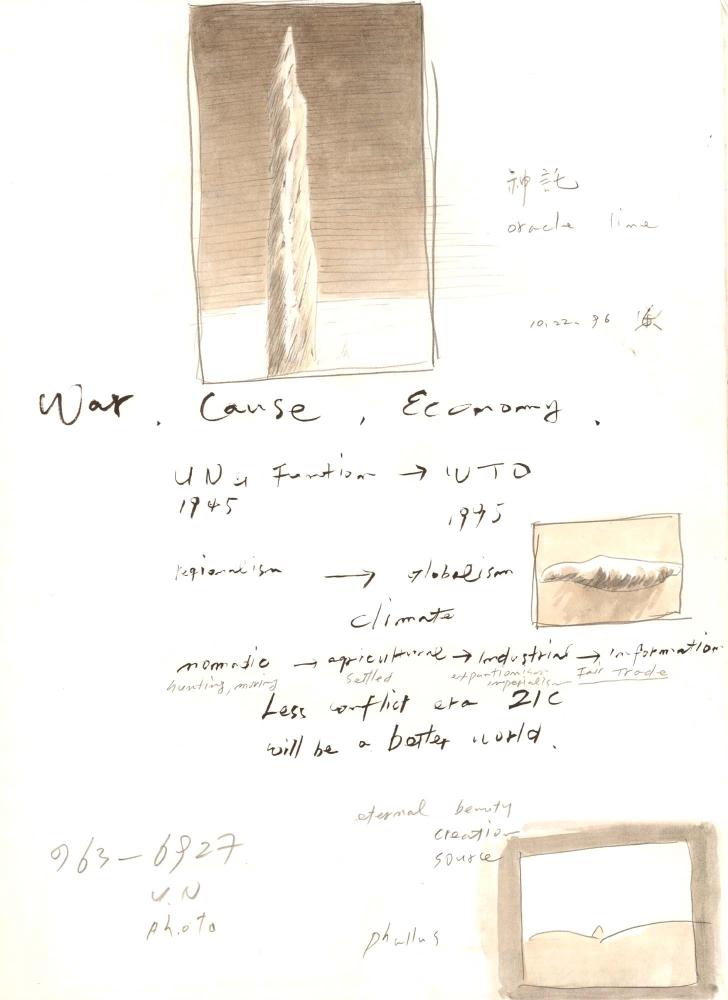 神託
oracle line
10.22.96
War. Cause, Economy.
UN Function → WTO
1945
1995
regionalism → globalism
climate
nomadic → agricultural → Industrial → information
hunting, moving Settled expantionism imperialism Fair Trade
Less conflict era 21C
will be a better world.
eternal beauty
creation
source
963-6927
U.N
photo
phallus